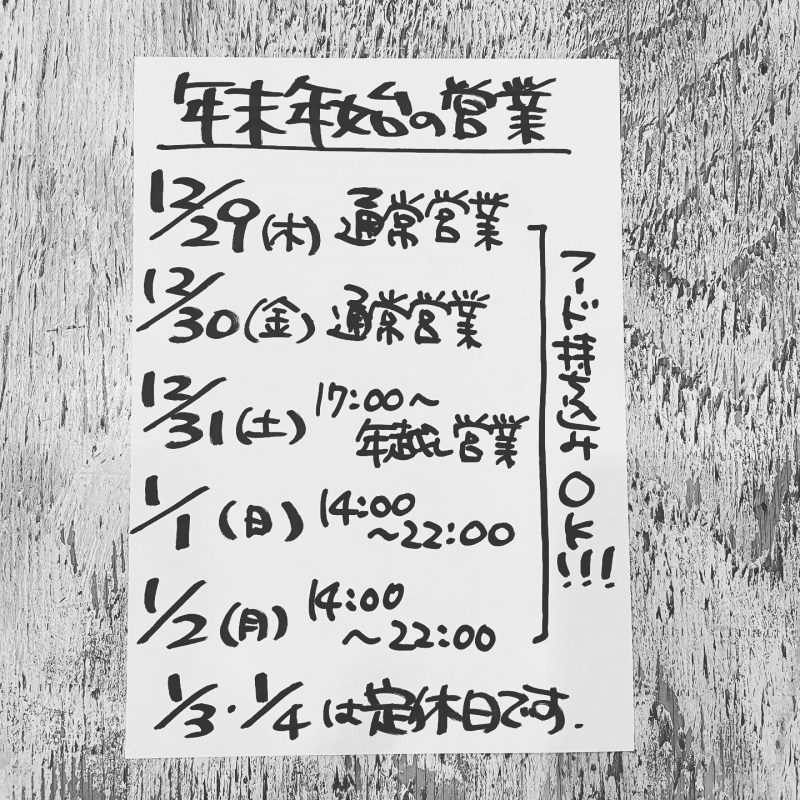 年末年始の営業
12/29(木) 通常営業
12/30(金) 通常営業
12/31(土) 17:00〜
年越し営業
1/1(日) 14:00
〜22:00
1/2(月) 14:00
〜22:00
フード持ち込みOK!!!
1/3・1/4は定休日です.